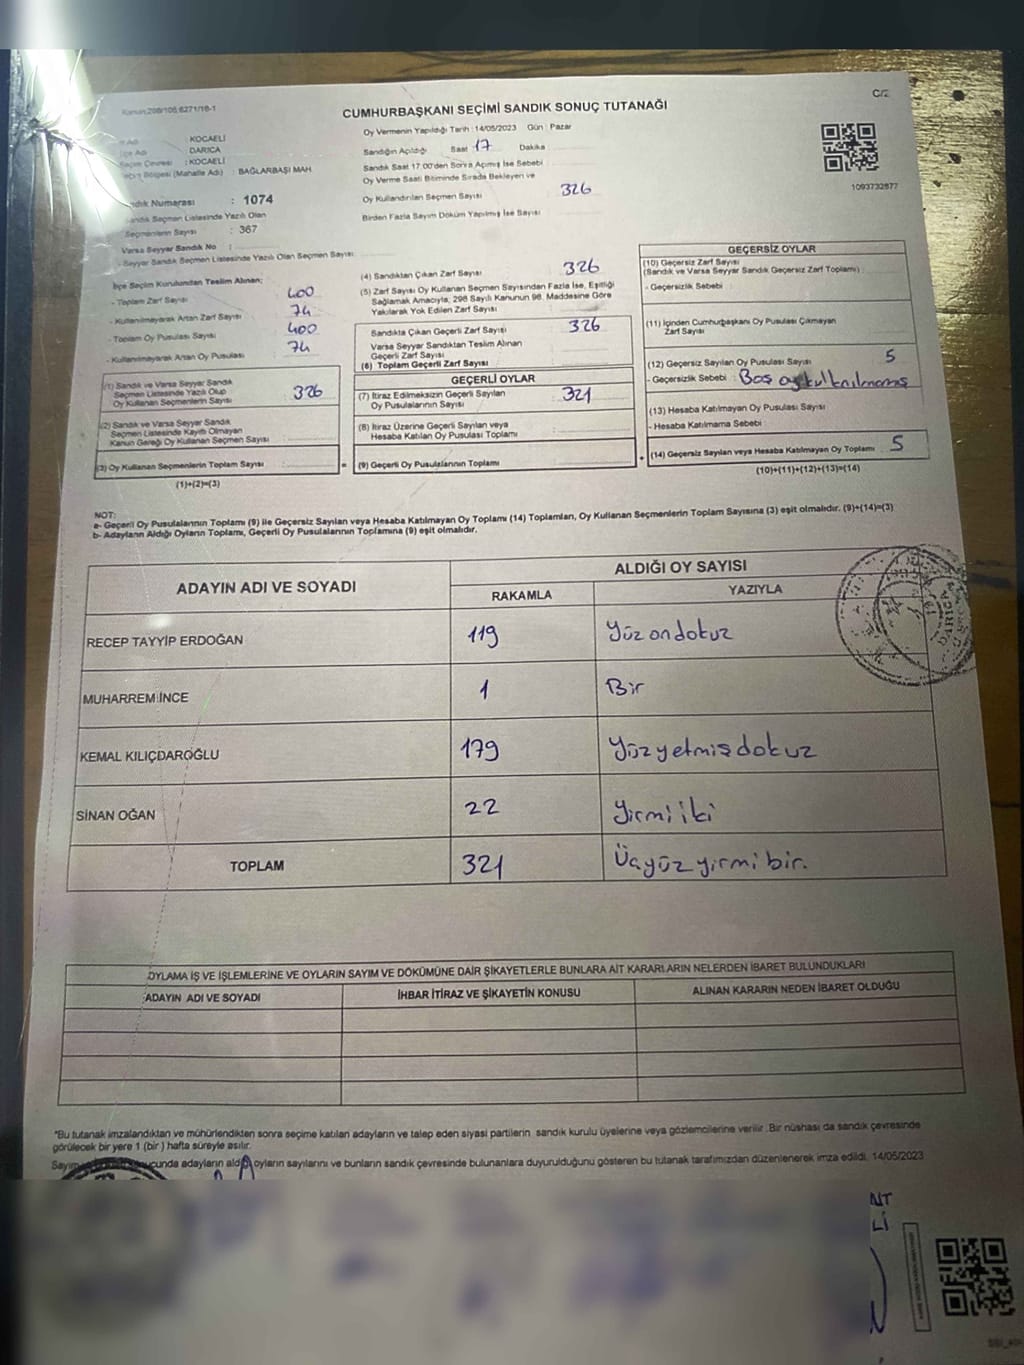 Kanun:298/105.6271/16-1
C/2
CUMHURBAŞKANI SEÇİMİ SANDIK SONUÇ TUTANAĞI
: KOCAELİ
İlçe Adı : DARICA
Seçim Çevresi : KOCAELİ
Seçim Bölgesi (Mahalle Adı) : BAĞLARBAŞI MAH
Sandık Numarası : 1074
Sandık Seçmen Listesinde Yazılı Olan
Seçmenlerin Sayısı : 367
Varsa Seyyar Sandık No :
- Seyyar Sandık Seçmen Listesinde Yazılı Olan Seçmen Sayısı:
Oy Vermenin Yapıldığı Tarih :14/05/2023 Gün : Pazar
Sandığın Açıldığı Saat : 17 Dakika
Sandık Saat 17:00'den Sonra Açımış İse Sebebi
Oy Verme Saati Bitiminde Sırada Bekleyen ve
Oy Kullandırılan Seçmen Sayısı 326
Birden Fazla Sayım Döküm Yapılmış İse Sayısı
1093732877
İlçe Seçim Kurulundan Teslim Alınan;
- Toplam Zarf Sayısı 400
- Kullanılmayarak Artan Zarf Sayısı 74
- Toplam Oy Pusulası Sayısı 400
- Kullanılmayarak Artan Oy Pusulası 74
(1) Sandık ve Varsa Seyyar Sandık
Seçmen Listesinde Yazılı Olup
Oy Kullanan Seçmenlerin Sayısı : 326
(2) Sandık ve Varsa Seyyar Sandık
Seçmen Listesinde Kayıtlı Olmayan
Kanun Gereği Oy Kullanan Seçmen Sayısı :
(3) Oy Kullanan Seçmenlerin Toplam Sayısı :
(1)+(2)=(3)
=
(4) Sandıktan Çıkan Zarf Sayısı : 326
(5) Zarf Sayısı Oy Kullanan Seçmen Sayısından Fazla İse, Eşitliği
Sağlamak Amacıyla, 298 Sayılı Kanunun 98. Maddesine Göre
Yakılarak Yok Edilen Zarf Sayısı :
Sandıkta Çıkan Geçerli Zarf Sayısı : 326
Varsa Seyyar Sandıktan Teslim Alınan
Geçerli Zarf Sayısı :
(6) Toplam Geçerli Zarf Sayısı
GEÇERLİ OYLAR
(7) İtiraz Edilmeksizin Geçerli Sayılan
Oy Pusulalarının Sayısı : 321
(8) İtiraz Üzerine Geçerli Sayılan veya
Hesaba Katılan Oy Pusulası Toplamı :
(9) Geçerli Oy Pusulalarının Toplamı :
+
GEÇERSİZ OYLAR
(10) Geçersiz Zarf Sayısı
(Sandık ve Varsa Seyyar Sandık Geçersiz Zarf Toplamı) :
- Geçersizlik Sebebi :
(11) İçinden Cumhurbaşkanı Oy Pusulası Çıkmayan
Zarf Sayısı :
(12) Geçersiz Sayılan Oy Pusulası Sayısı : 5
- Geçersizlik Sebebi : Boş oy kullanılmamış
(13) Hesaba Katılmayan Oy Pusulası Sayısı
- Hesaba Katılmama Sebebi :
(14) Geçersiz Sayılan veya Hesaba Katılmayan Oy Toplamı : 5
(10)+(11)+(12)+(13)=(14)
NOT:
a- Geçerli Oy Pusulalarının Toplamı (9) ile Geçersiz Sayılan veya Hesaba Katılmayan Oy Toplamı (14) Toplamları, Oy Kullanan Seçmenlerin Toplam Sayısına (3) eşit olmalıdır. (9)+(14)=(3)
b- Adayların Aldığı Oyların Toplamı, Geçerli Oy Pusulalarının Toplamına (9) eşit olmalıdır.
ADAYIN ADI VE SOYADI
ALDIĞI OY SAYISI
RAKAMLA YAZIYLA
RECEP TAYYİP ERDOĞAN 119 Yüz ondokuz
MUHARREM İNCE 1 Bir
KEMAL KILIÇDAROĞLU 179 Yüzyetmişdokuz
SİNAN OĞAN 22 Yirmi iki
TOPLAM 321 Üçyüz yirmi bir.
DARICA
OYLAMA İŞ VE İŞLEMLERİNE VE OYLARIN SAYIM VE DÖKÜMÜNE DAİR ŞİKAYETLERLE BUNLARA AİT KARARLARIN NELERDEN İBARET BULUNDUKLARI
ADAYIN ADI VE SOYADI İHBAR İTİRAZ VE ŞİKAYETİN KONUSU ALINAN KARARIN NEDEN İBARET OLDUĞU
*Bu tutanak imzalandıktan ve mühürlendikten sonra seçime katılan adayların ve talep eden siyasi partilerin sandık kurulu üyelerine veya gözlemcilerine verilir. Bir nüshası da sandık çevresinde
görülecek bir yere 1 (bir) hafta süreyle asılır.
Sayım ucunda adayların aldığı oyların sayılarını ve bunların sandık çevresinde bulunanlara duyurulduğunu gösteren bu tutanak tarafımızdan düzenlenerek imza edildi. 14/05/2023
NT
Lİ